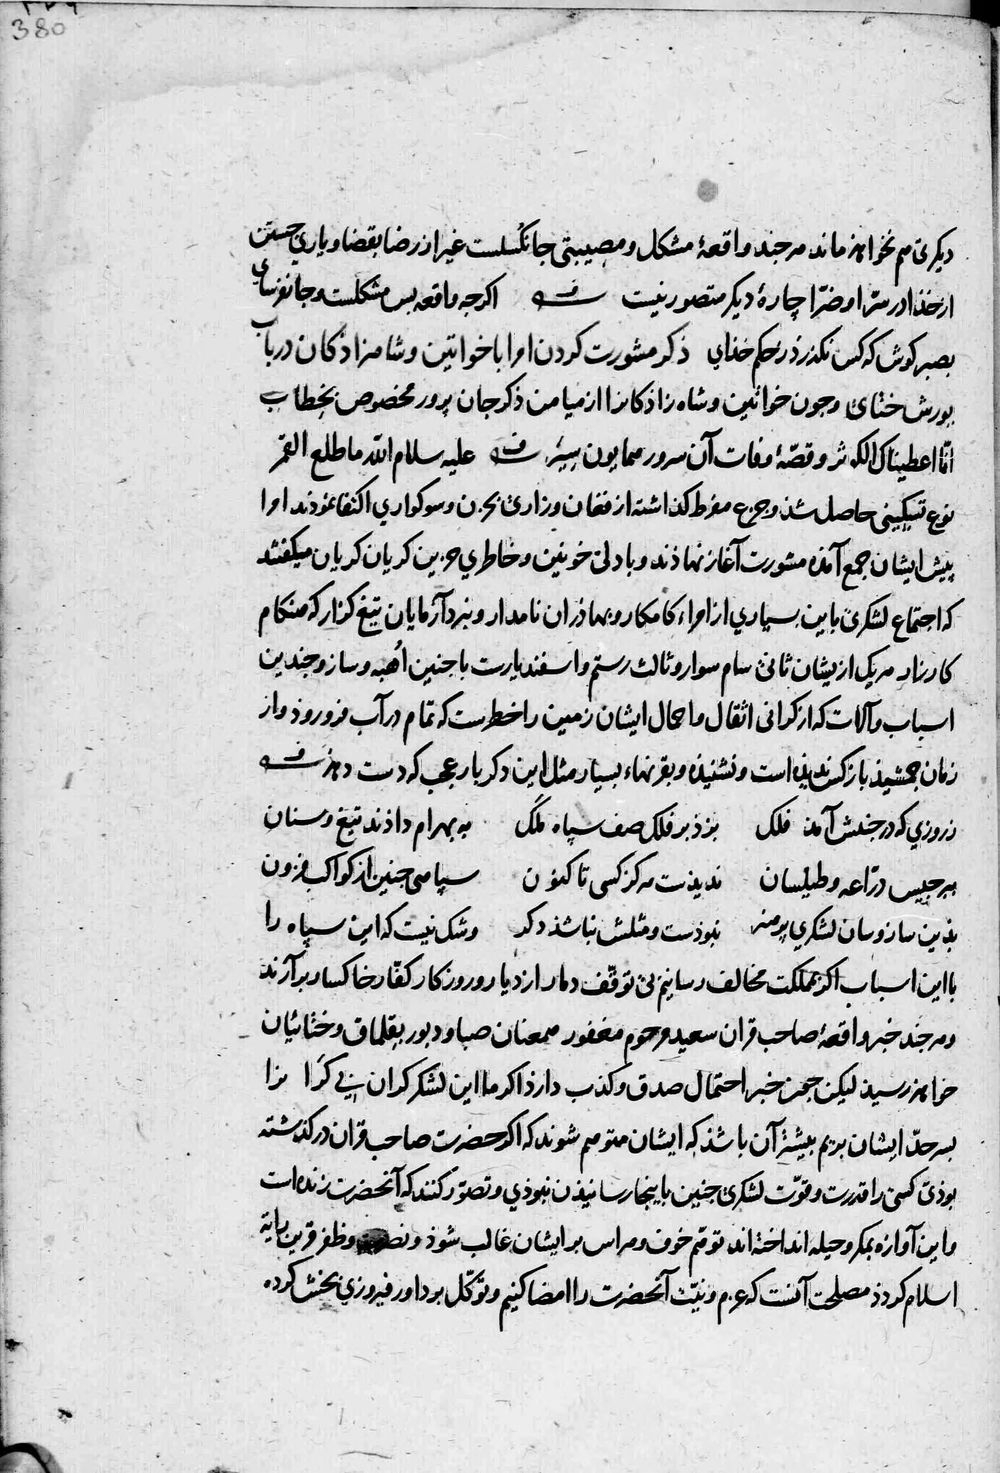 380
دیکری هم نخواهذ ماند هرجند واقعهٔ مشکل و مصیبتی جانکسلست غیر از رضا بقضا ویاری جستن
از خذا در سرّا و ضرّا چارهٔ دیکر متصور نیست اکرجه واقعه بس مشکلست و جانفرسای
بصبر کوش که کس نکذرذ ز حکم خذای ذکر مشورت کردن امرا با خواتین و شاهزاذکان در باب
یورش ختای وجون خواتین و شاه زاذکانرا از میامن ذکر جان برور مخصوص بخطاب
انّا اعطیناک الکوثر و قصّهٔ وفات آن سرور همایون سِیَر علیه سلام الله ما طلع القمر
نوع تسکینی حاصل شذ و جزع مفرط کذاشته از فغان و زاری بحزن و سوکواری اکتفا نموذند امرا
پیش ایشان جمع آمذه مشورت آغاز نهاذند و با دلی خونین و خاطری حزین کریان کریان میکفتند
که اجتماع لشکری باین بسیاری از امراء کامکار و بهاذران نامدار و نبرد آزمایان تیغ کزار که هنکام
کارزار هریک از یشان ثانی سام سوار و ثالث رستم و اسفندیارست با جنین اُهبه و ساز و جندین
اسباب و آلات که از کرانی اثقال و احمال ایشان زمین را خطرست که تمام در آب فرو روذ و از
زمان جمشیذ باز کس ندیذه است و نشنیذه و بقرنهاء بسیار مثل این دکر بار عجب که دست دهذ
ز روزی که در جنبش آمذ فلک بزذ بر فلک صف سپاه مَلَک به بهرام داذند تیغ و سنان
ببرجیس درّاعه و طیلسان ندیذست هرکز کسی تا کنون سپاهی جنین از کواکب فزون
بذین ساز و سان لشکری پرهنر نبوذست و مثلش نباشذ دکر وشک نیست که این سپاه را
با این اسباب اکر بمملکت مخالف رسانیم بی توقّف دمار از دیار و روزکار کفّار خاکسار بر آرند
و هرجند خبر واقعهٔ صاحب قران سعید مرحوم مغفور همعنان صبا و دبور بقلماق و ختائیان
خواهذ رسیذ لیکن جون خبر احتمال صدق و کذب دارذ اکر ما این لشکر کران بی کران را
بسرحدّ ایشان بریم بیشتر آن باشذ که ایشان متوهم شوند که اکر حضرت صاحب قران درکذشته
بوذی کسی را قدرت و قوّت لشکری جنین باینجا رسانیذن نبوذی و تصوّر کنند که آنحضرت زنده است
و این آوازه بمکر و حیله انداخته اند توهّم خوف و هراس بر ایشان غالب شوذ و نصرت و ظفر قرین رایة
اسلام کردذ مصلحت آنست که عزم و نیّت آنحضرت را امضا کنیم و توکّل بر داور فیروزی بخش کرده